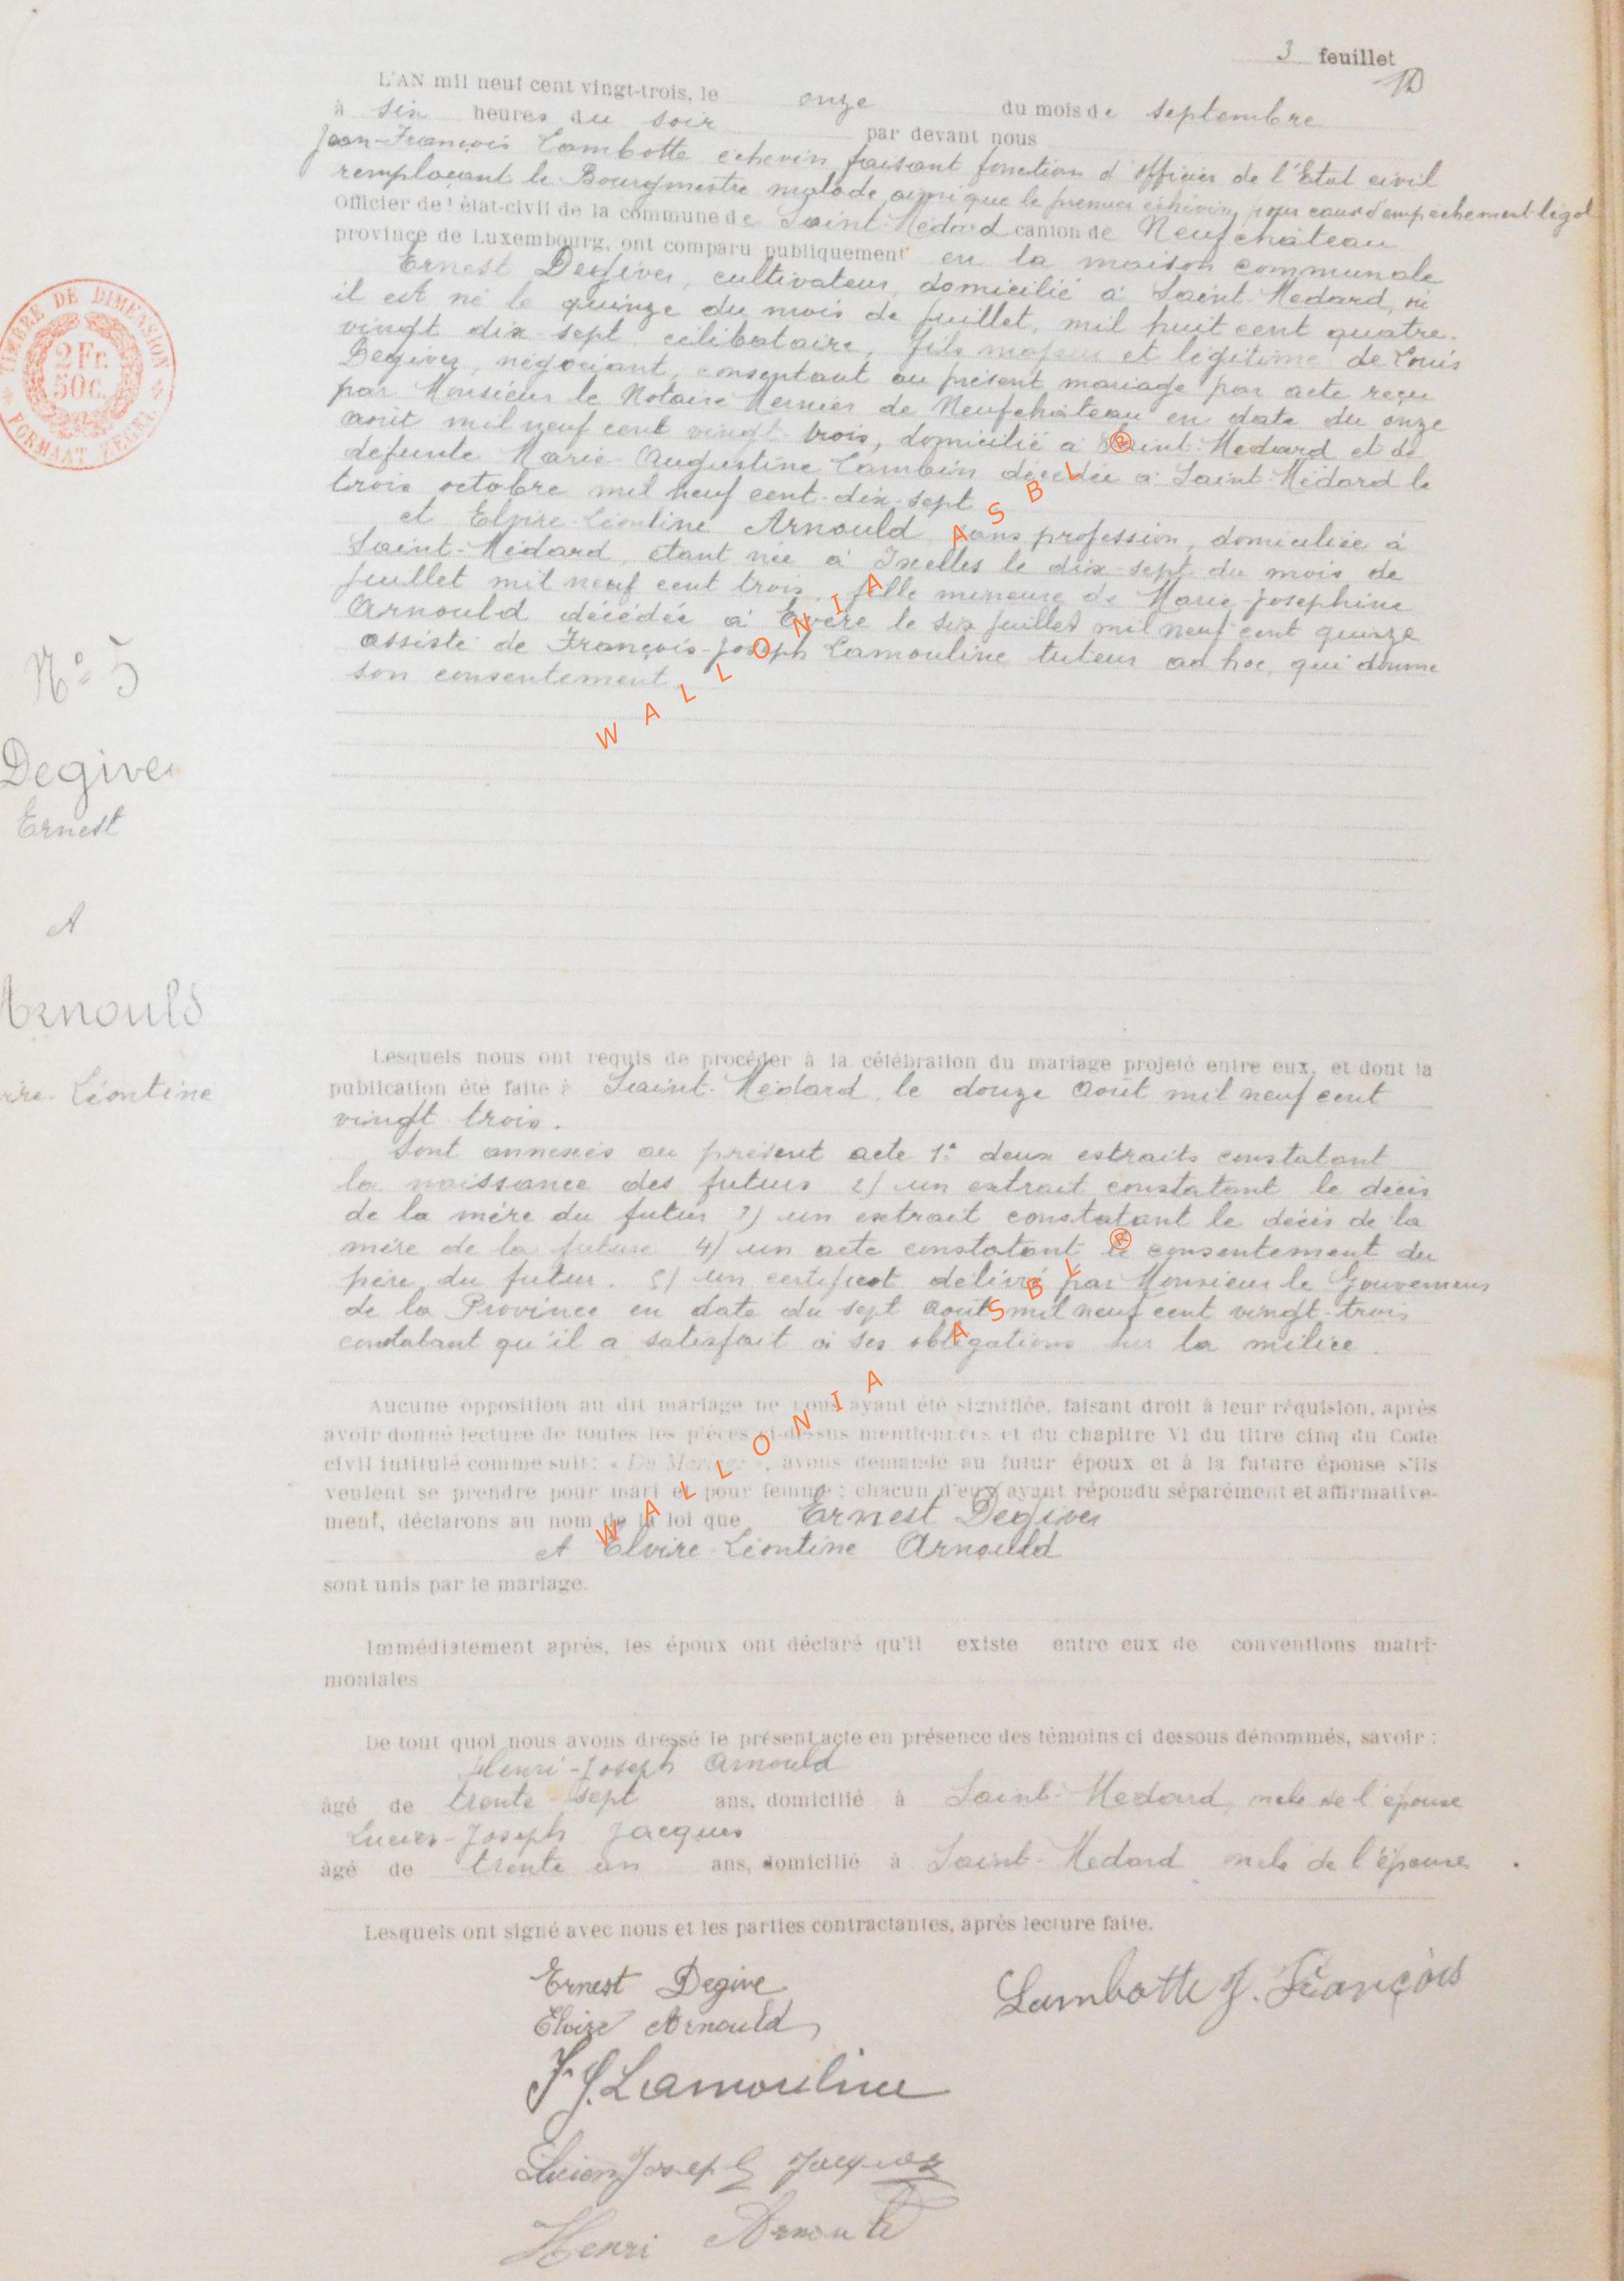 3 feuillet
L'AN mil neuf cent vingt-trois, le onze du mois de septembre
à six heures du soir par devant nous
Jean-François Lambotte échevin faisant fonction d'officier de l'Etat civil
remplaçant le Bourgmestre malade ainsi que le premier échevin, pour cause d'empêchement légal
Officier de l'état-civil de la commune de Saint-Médard canton de Neufchâteau
province de Luxembourg, ont comparu publiquement en la maison communale
Ernest Degives, cultivateur, domicilié à Saint-Medard, où
il est né le quinze du mois de juillet, mil huit cent quatre-
vingt dix-sept, célibataire, fils majeur et légitime de Louis
Degives, négociant, consentant au présent mariage par acte reçu
par Monsieur le Notaire Mernier de Neufchâteau en date du onze
août mil neuf cent vingt-trois, domicilié à Saint-Medard et de
defunte Marie-Augustine Lambin décédée à Saint-Médard le
trois octobre mil neuf cent-dix-sept
et Elvire-Léontine Arnould, sans profession, domiciliée à
Saint-Médard, étant née à Ixelles le dix-sept du mois de
juillet mil neuf cent trois, fille mineure de Marie-Josephine
Arnould décédée à Evere le six juillet mil neuf cent quinze
assisté de François-Joseph Lamouline tuteur ad hoc, qui donne
son consentement.
N° 5
Degives
Ernest
A
Arnould
Léontine
Lesquels nous ont requis de procéder à la célébration du mariage projeté entre eux, et dont la
publication été faite à Saint-Médard, le douze Août mil neuf cent
vingt trois.
Sont annexés au présent acte 1° deux extraits constatant
la naissance des futurs 2) un extrait constatant le décès
de la mère du futur 3) un extrait constatant le décès de la
mère de la future 4) un acte constatant le consentement du
père du futur. 5) un certificat délivré par Monsieur le Gouverneur
de la Province en date du sept Août mil neuf cent vingt-trois
constatant qu'il a satisfait à ses obligations sur la milice.
Aucune opposition au dit mariage ne nous ayant été signifiée, faisant droit à leur réquision, après
avoir donné lecture de toutes les pièces ci-dessus mentionnées et du chapitre VI du titre cinq du Code
civil intitulé comme suit: « Du Mariage », avons demandé au futur époux et à la future épouse s'ils
veulent se prendre pour mari et pour femme; chacun d'eux ayant répondu séparément et affirmative-
ment, déclarons au nom de la loi que Ernest Degives
et Elvire-Léontine Arnould
sont unis par le mariage.
Immédiatement après, les époux ont déclaré qu'il existe entre eux de conventions matri-
moniales
De tout quoi nous avons dressé le présent acte en présence des témoins ci dessous dénommés, savoir :
Henri-Joseph Arnould
âgé de trente sept ans, domicilié à Saint-Medard, de l'épouse
Lucien-Joseph Jacques
âgé de trente un ans, domicilié à Saint-Medard de l'épouse
Lesquels ont signé avec nous et les parties contractantes, après lecture faite.
Ernest Degive
Lambotte J. François
Elvire Arnould
F J. Lamouline
Lucien Joseph Jacques
Henri Arnould
TIMBRE DE DIMENSION
2 Fr.
50 C.
FORMAAT ZEGEL
WALLONIA ASBL ®
WALLONIA ASBL ®